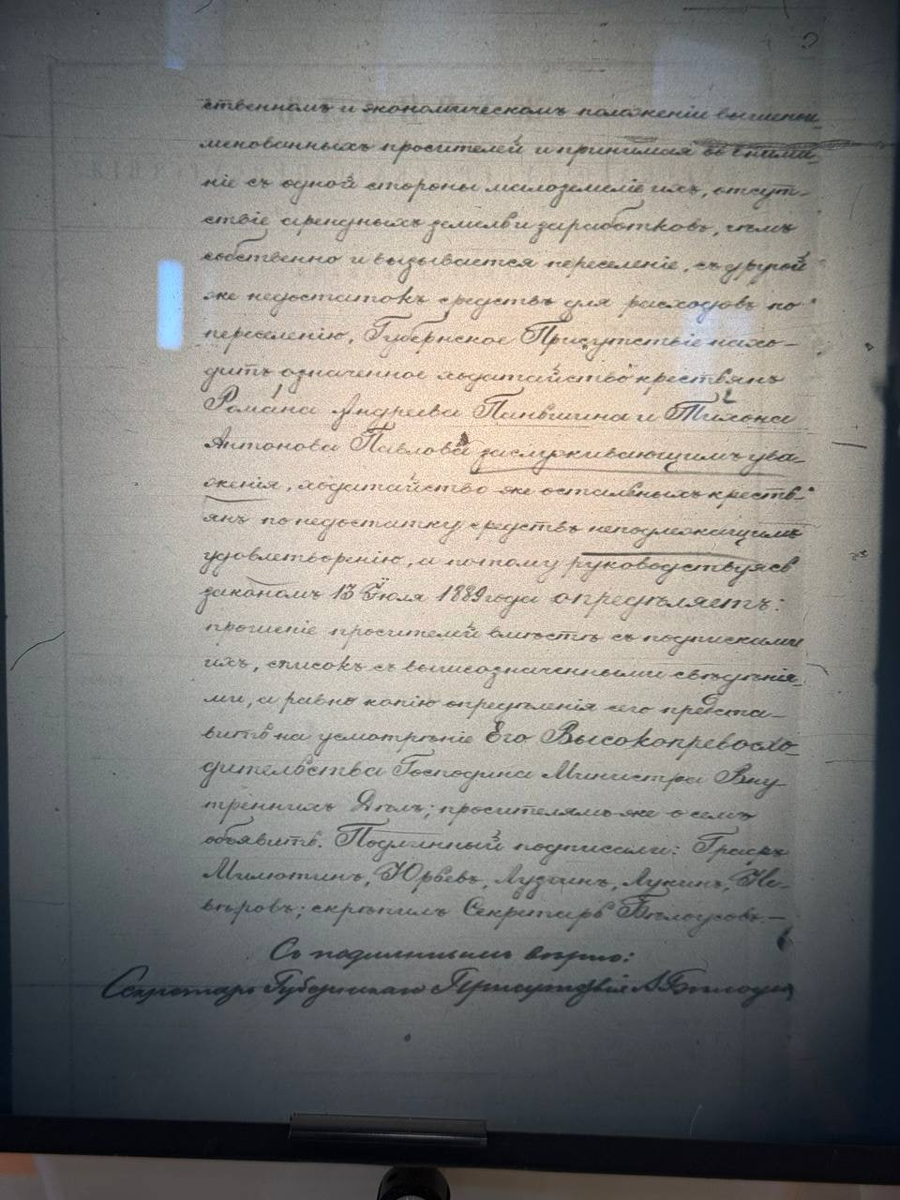 ственномъ и экономическомъ положеніи вышепои
менованныхъ просителей и принимая во внима
ніе съ одной стороны малоземеліе ихъ, отсут-
ствіе арендныхъ земель и заработковъ, чѣмъ
собственно и вызывается переселеніе, съ другой
же недостатокъ средствъ для расходовъ по
переселенію, Губернское Присутствіе нахо-
дитъ означенное ходатайство крестьянъ
Романа Андреева Паньшина и Тихона
Антонова Павлова заслуживающимъ ува-
женія, ходатайство же остальныхъ кресть-
янъ по недостатку средствъ неподлежащимъ
удовлетворенію, а потому руководствуясь
закономъ 13 Іюля 1889 года опредѣляетъ:
прошеніе просителей вмѣстѣ съ подписками
ихъ, списокъ съ вышеозначенными свѣдѣнія-
ми, а равно копію опредѣленія сего предста-
вить на усмотрѣніе Его Высокопревосхо-
дительства Господина Министра Вну-
треннихъ Дѣлъ; просителямъ же о семъ
объявить. Подлинный подписали: Графъ
Милютинъ, Юрьевъ, Лукинъ, Не-
вѣровъ; скрѣпилъ Секретарь Бѣлоусовъ.—
Съ подлиннымъ вѣрно:
Секретарь Губернскаго Присутствія А. Бѣлоусов